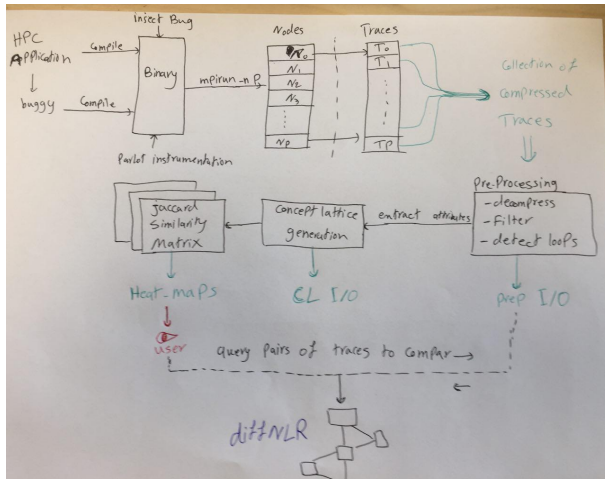 insect Bug
HPC
Application
Compile
buggy
Compile
Binary
mpirun -n P
Parlot instrumentation
Nodes
N0
N1
N2
N3
NP
Traces
T0
T1
TP
Cllection of
Compressed
Traces
Pre-Processing
- decompress
- Filter
- detect loops
extract attributes
Concept lattice
generation
Jaccard
Similarity
Matrix
Heat-maps
CL I/O
prep I/O
user
query pairs of traces to compar
diffNLR